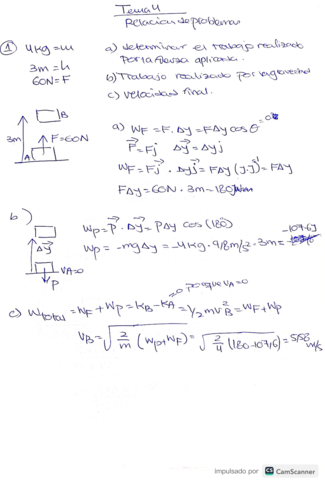 Tema 4
Relación de problemas
① 4kg = m a) determinar el trabajo realizado
3m = h por la fuerza aplicada.
60N = F b) Trabajo realizado por la gravedad
c) velocidad final.
B
3m F=60N
A
a) W_F = F·Δy = FΔy cosθ =0º
F⃗ = Fj Δy⃗ = Δyj
W_F = Fj⃗ · Δyj⃗ = FΔy (j·j)¹ = FΔy
FΔy = 60N · 3m = 180J
b) W_P = P⃗ · Δy⃗ = PΔy cos(180)
Δy⃗ W_P = -mgΔy = -4kg · 9,8m/s² · 3m = -107,6J
V_A=0
P
=0 porque V_A=0
c) W_total = W_F + W_P = K_B - K_A = 1/2 m V_B² = W_F + W_P
V_B = √(2/m (W_P + W_F)) = √(2/4 (180-107,6)) = 5,58 m/s
impulsado por CS CamScanner